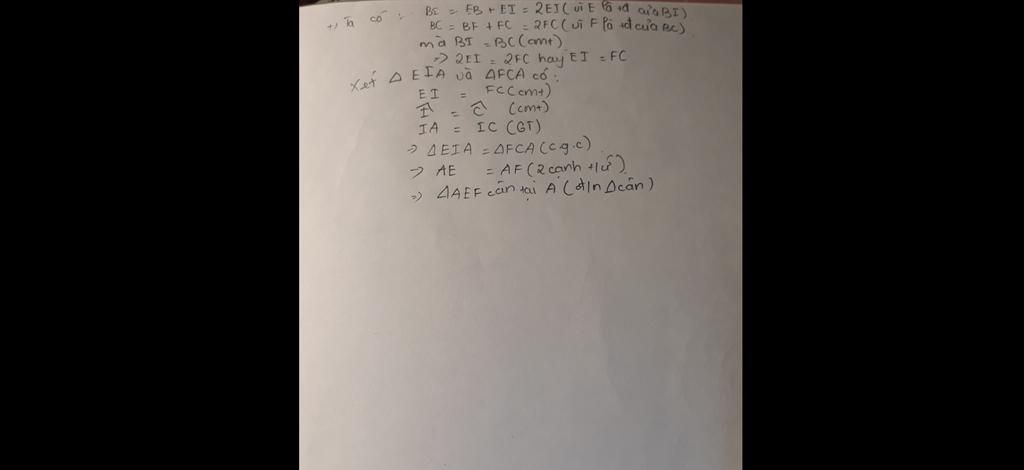 +, Ta có : BI = EB + EI = 2EI ( vì E là tđ của BI )
BC = BF + FC = 2FC ( vì F là tđ của BC )
mà BI = BC (cmt)
=> 2EI = 2FC hay EI = FC
Xét Δ EIA và ΔFCA có :
EI = FC (cmt)
Î = Ĉ (cmt)
IA = IC (GT)
=> ΔEIA = ΔFCA (c.g.c)
=> AE = AF ( 2 cạnh t/ứ )
=> ΔAEF cân tại A ( đ/n Δcân )